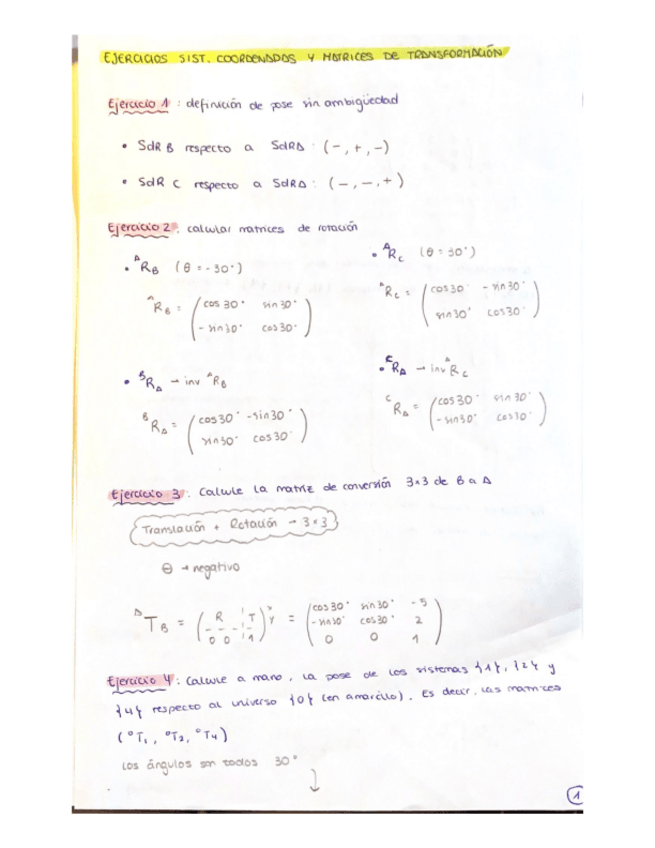 EJERCICIOS SIST. COORDENADAS Y MATRICES DE TRANSFORMACIÓN
Ejercicio 1 : definición de pose sin ambigüedad
• SdR B respecto a SdRA : (-, +, -)
• SdR C respecto a SdRA : (-, -, +)
Ejercicio 2 : calcular matrices de rotación
• ᴬR_B (θ = -30°)
ᴬR_B = ( cos 30° sin 30°
- sin 30° cos 30° )
• ᴬR_C (θ = 30°)
ᴬR_C = ( cos 30° - sin 30°
sin 30° cos 30° )
• ᴮR_A → inv ᴬR_B
ᴮR_A = ( cos 30° - sin 30°
sin 30° cos 30° )
• ᶜR_A → inv ᴬR_C
ᶜR_A = ( cos 30° sin 30°
- sin 30° cos 30° )
Ejercicio 3 : Calcule la matriz de conversión 3x3 de B a A
Translación + Rotación → 3x3
θ → negativo
ᴬT_B = ( R T ) x = ( cos 30° sin 30° -5
0 0 1 y - sin 30° cos 30° 2
0 0 1 )
Ejercicio 4 : Calcule a mano, la pose de los sistemas {1}, {2} y
{4} respecto al universo {0} (en amarillo). Es decir, las matrices
(⁰T₁, ⁰T₂, ⁰T₄)
Los ángulos son todos 30°
↓
1